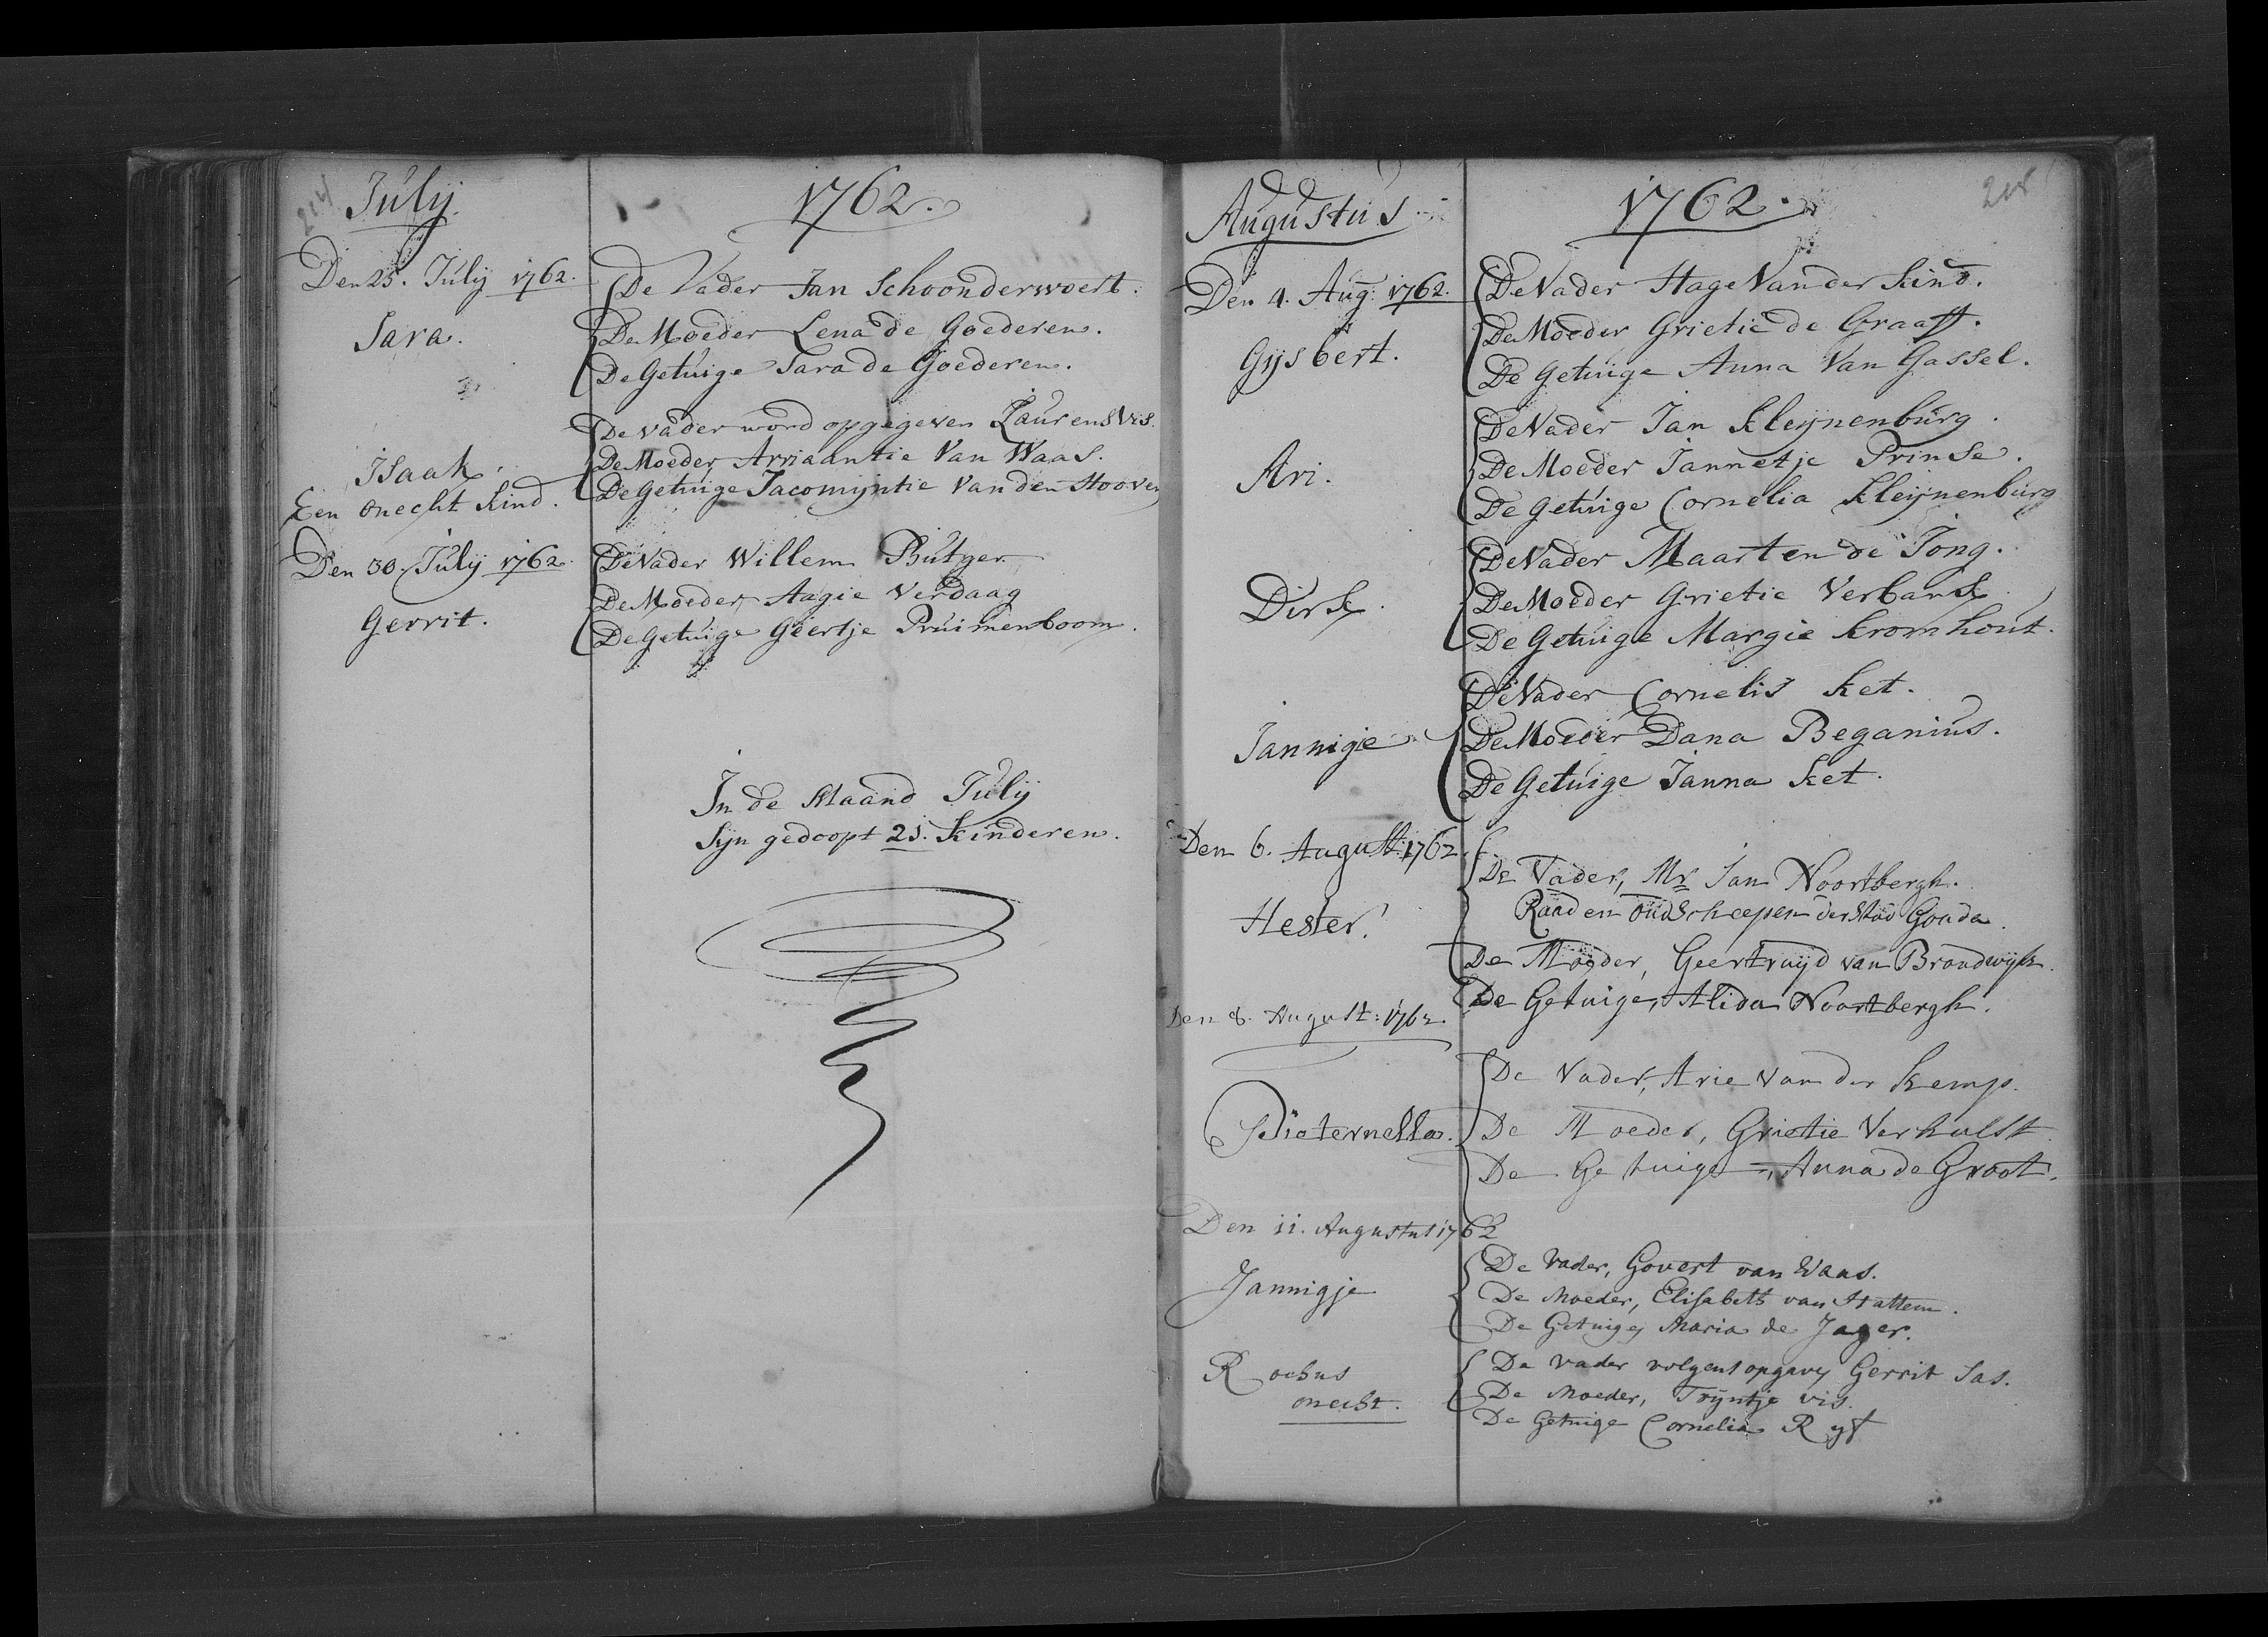 214
July.
1762.
Den 25. July 1762.
Sara.
De Vader Jan Schoonderwoert.
De Moeder Lena de Goederen.
De Getuige Sara de Goederen.
Isaak.
Een onecht kind.
De vader word opgegeven Laurens Vis.
De Moeder Arriaantie Van Waas.
De Getuige Jacomyntie Van den Hooven
Den 30. July 1762.
Gerrit.
De Vader Willem Butger
De Moeder Aagie Verdaag
De Getuige Geertje Pruimenboom.
In de Maand July
Syn gedoopt 21. Kinderen.
Augustus
1762.
215
Den 4. Aug: 1762.
Gysbert.
De Vader Hage Van der Kind.
De Moeder Grietie de Graaff.
De Getuige Anna Van Gassel.
Ari.
De Vader Jan Kleynenburg.
De Moeder Jannetje Prinse.
De Getuige Cornelia Kleynenburg
Dirk.
De Vader Maarten de Jong.
De Moeder Grietie Verbank.
De Getuige Margie Kromhout.
Jannigje
De Vader Cornelis Ket.
De Moeder Dana Beganius.
De Getuige Janna Ket.
Den 6. August: 1762.
Hester.
De Vader, Mr Jan Noortbergh.
Raad en oud Scheepen der Stad Gouda.
De Moeder, Geertruyd van Brandwyk.
De Getuige, Alida Noortbergh.
Den 8. August: 1762.
Pieternella.
De Vader, Arie van der Kemp.
De Moeder, Grietie Verhulst.
De Getuige, Anna de Groot.
Den 11. Augustus 1762
Jannigje
De Vader, Govert van Waas.
De Moeder, Elisabeth van Hattem.
De Getuige, Maria de Jager.
Rochus
onecht.
De vader volgens opgave, Gerrit Sas.
De Moeder, Tryntje vis.
De Getuige Cornelia Ryf